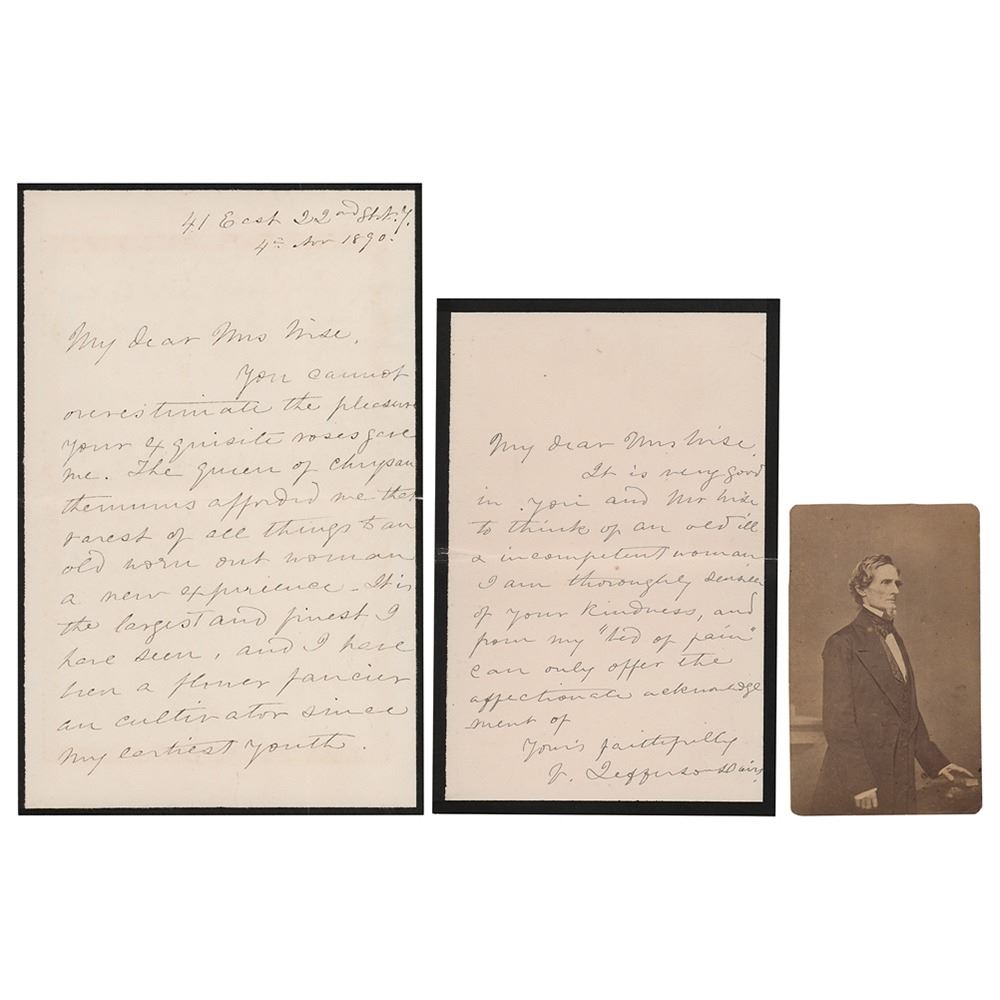 41 East 22nd St N.Y.
4th Nov 1890.
My dear Mrs Wise,
You cannot
overestimate the pleasure
your exquisite roses gave
me. The queen of chrysan
themums afforded me that
rarest of all things to an
old worn out woman
a new experience. It is
the largest and finest I
have seen, and I have
been a flower fancier
an cultivator since
my earliest youth.
My dear Mrs Wise,
It is very good
in you and Mr Wise
to think of an old ill
& incompetent woman
I am thoroughly
of your kindness, and
from my "bed of pain"
can only offer the
affectionate acknowledge
ment of
Yours faithfully
V. Jefferson Davis